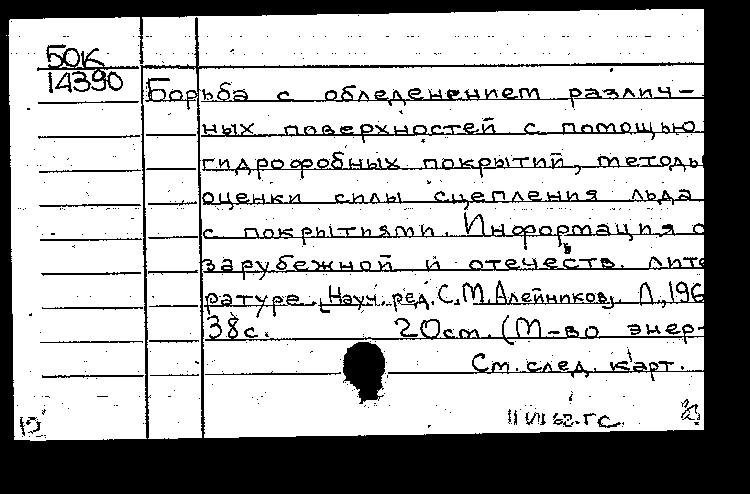 БОК
14390
Борьба с обледенением различ-
ных поверхностей с помощью
гидрофобных покрытий, методы
оценки силы сцепления льда
с покрытиями. Информация о
зарубежной и отечеств. лите
ратура. [Науч. ред. С.М. Алейников]. Л., 196
38 с. 20 см. (М-во энер-
См. след. карт.
II VII 62. ГС.